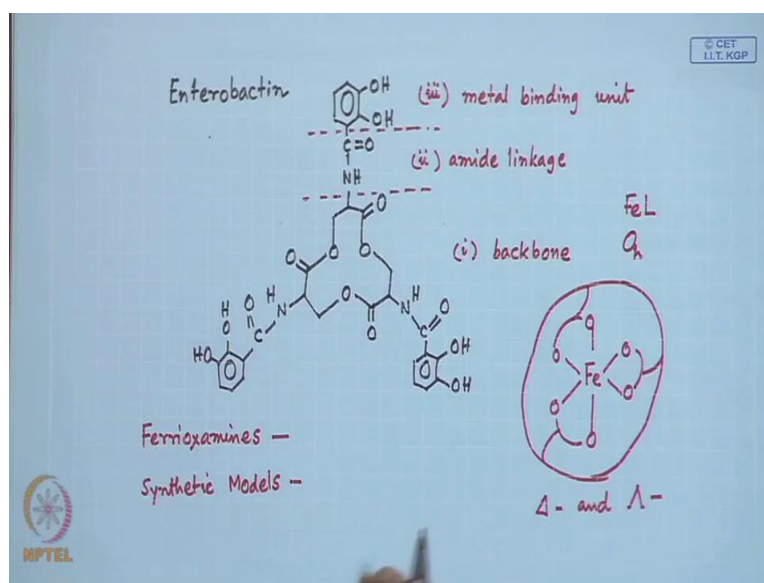 © CET
I.I.T. KGP
Enterobactin
OH
OH
(iii) metal binding unit
C=O
(ii) amide linkage
NH
O
FeL
O O O
(i) backbone
Oh
H O
H N
O
N H
O
H
O
C
O
C
HO
OH
OH
O
O O
Fe
O O
O
Ferrioxamines -
Synthetic Models -
Δ - and Λ -
NPTEL